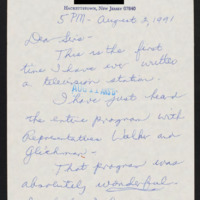 HACKETTSTOWN, NEW JERSEY 07840
5 PM - August 3, 1991
Dear Sirs -
This is the first
time I have ever written
a television station.
I have just heard
the entire program with
Representatives Walker and
Glickman -
That program was
absolutely wonderful.